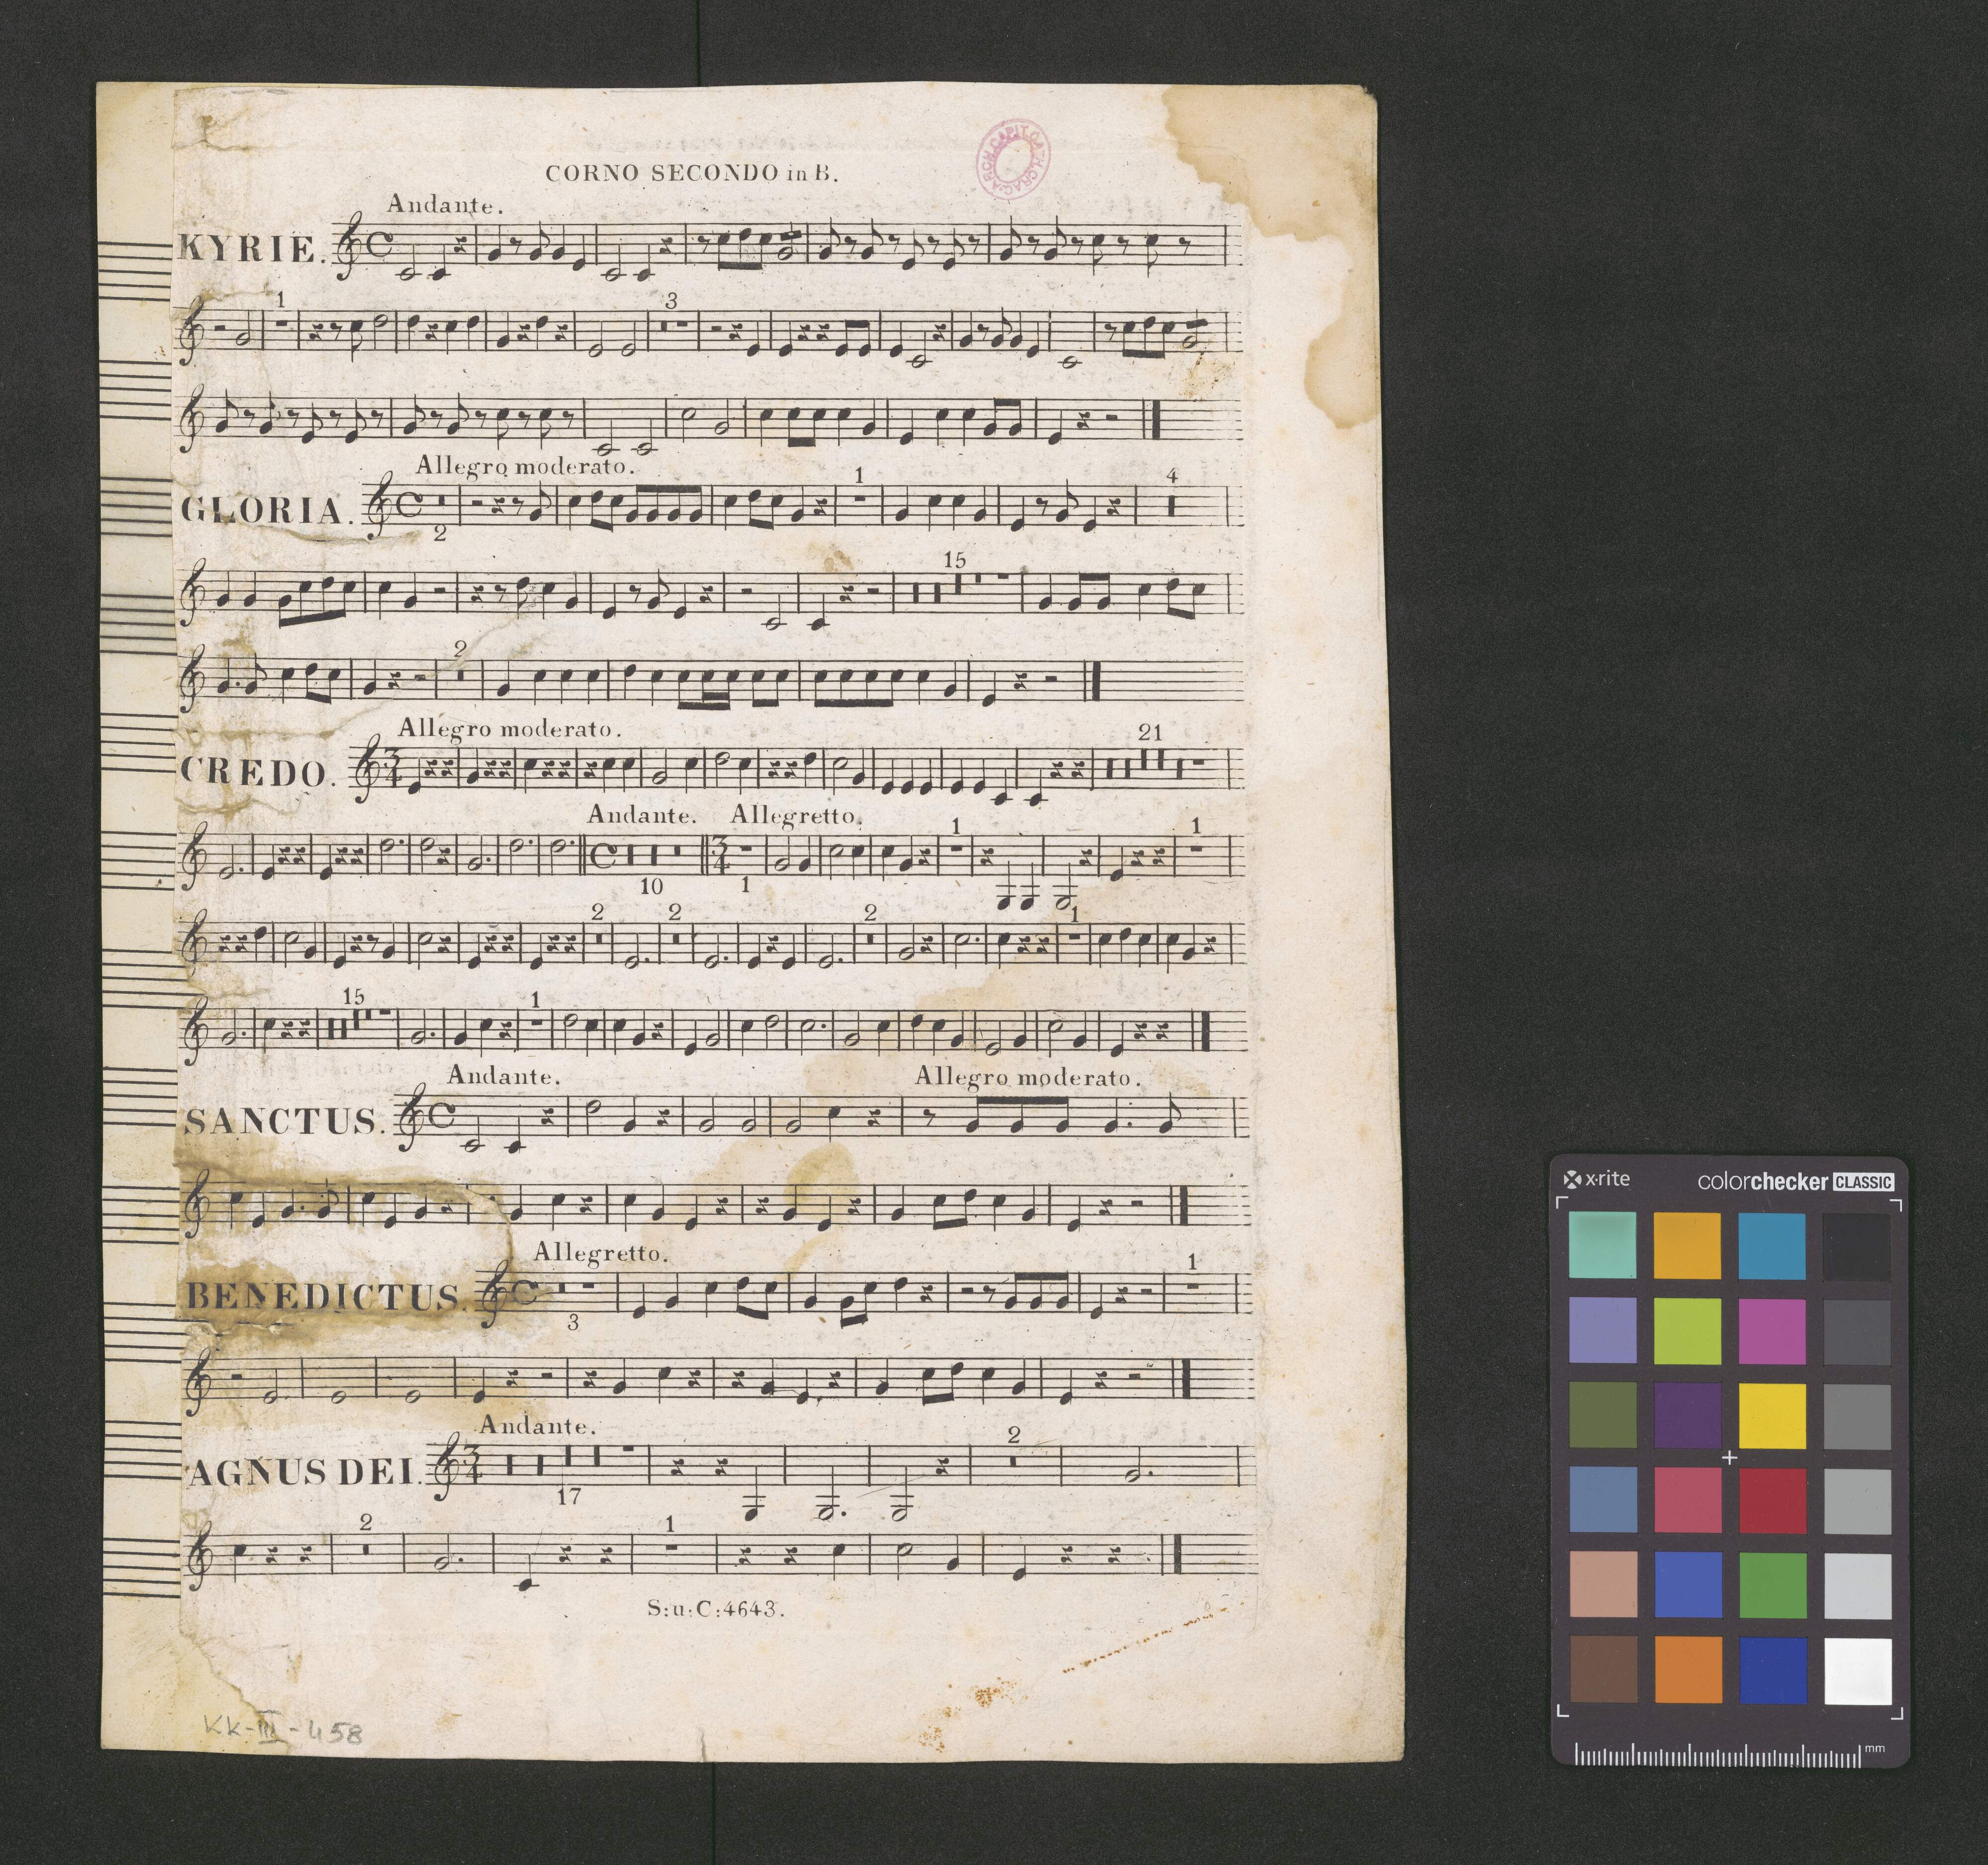 CORNO SECONDO in B.
ARCH. CAPIT. CATH. CRAC.
Andante.
KYRIE.
1
3
Allegro moderato.
GLORIA.
1
4
2
15
2
Allegro moderato.
21
CREDO.
3
4
Andante. Allegretto.
1
1
3
4
10
1
2
2
2
1
15
1
Andante.
Allegro moderato.
SANCTUS.
Allegretto.
1
BENEDICTUS.
3
Andante.
2
AGNUS DEI.
3
4
17
2
1
S:u:C:4643.
KK-III-458
x·rite
colorchecker CLASSIC
mm